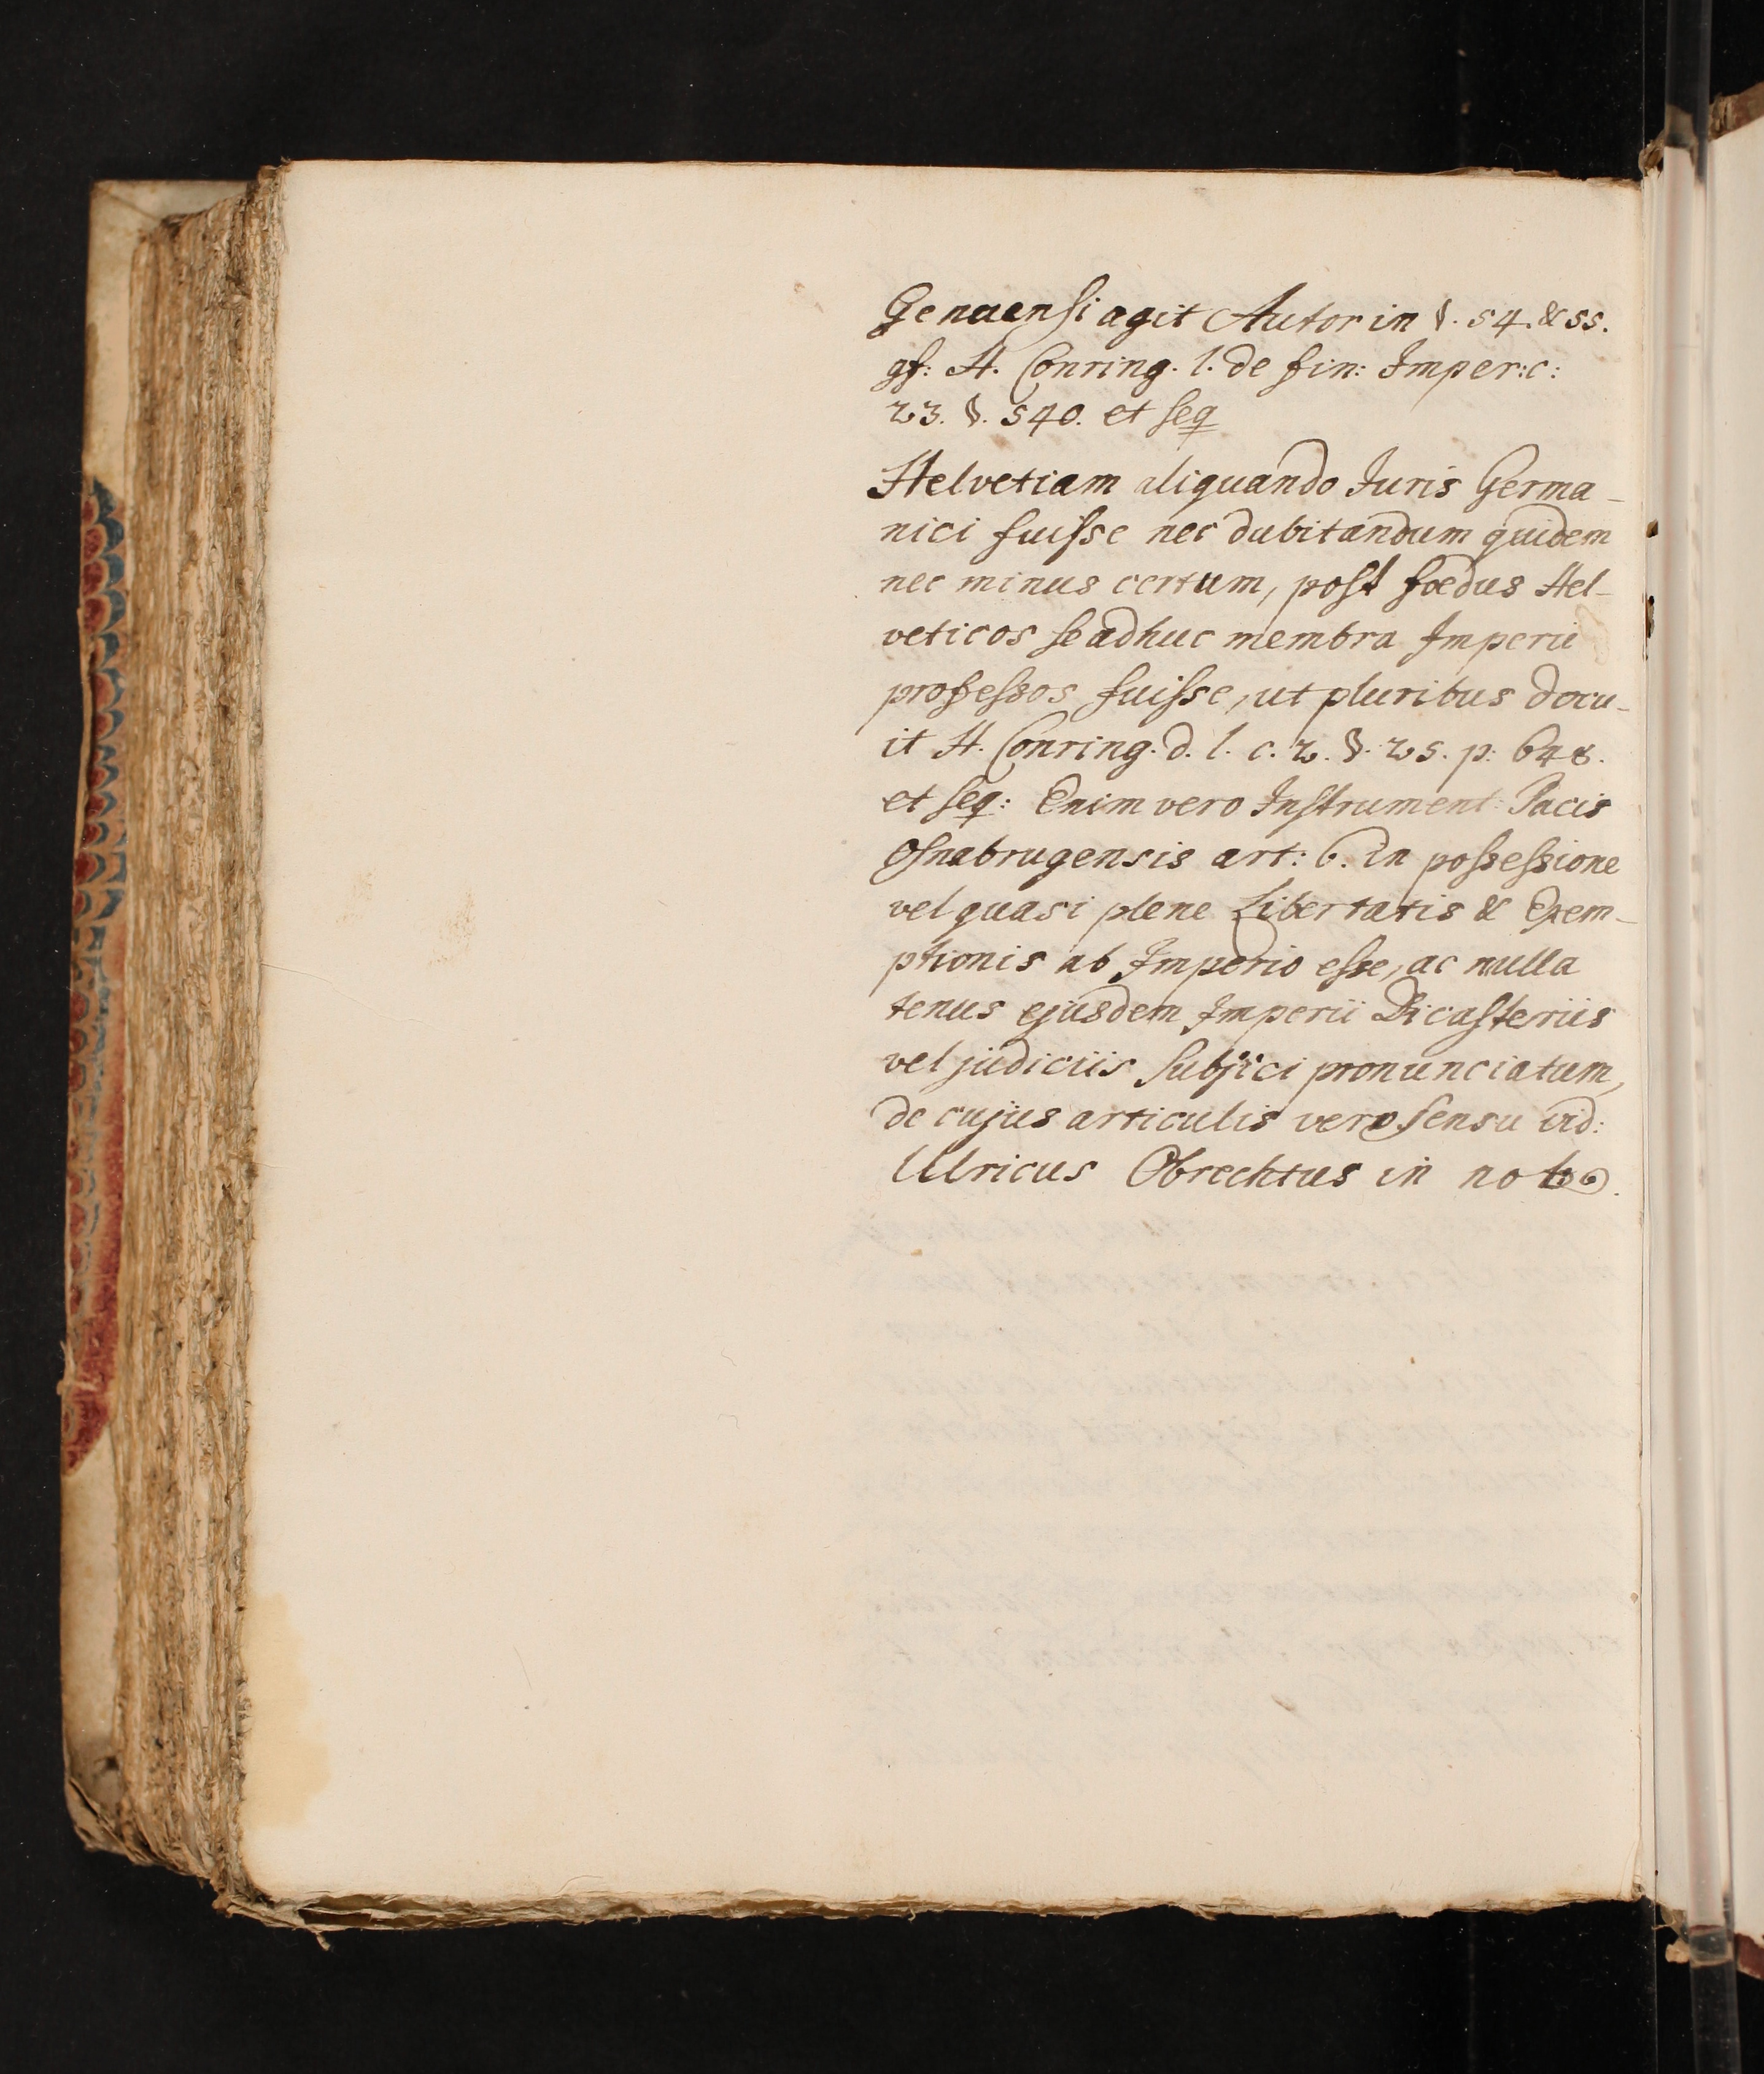 Genuensi agit Autor in §. 54. & 55.
gf: H. Conring. l. de fin: Imper: c:
23. §. 540. et seq
Helvetiam aliquando Juris Germa-
nici fuisse nec dubitandum quidem
nec minus certum, post foedus Hel-
veticos se adhuc membra Imperii
professos fuisse, ut pluribus docu-
it H. Conring. d. l. c. 2. §. 25. p: 648.
et seq: Enim vero Instrument: Pacis
Osnabrugensis art: 6. in possessione
vel quasi plene Libertatis & Exem-
ptionis ab Imperio esse, ac nulla
tenus ejusdem Imperii Dicasteriis
vel judiciis subjici pronunciatum,
de cujus articulis vero sensu vid:
Ulricus Obrechtus in